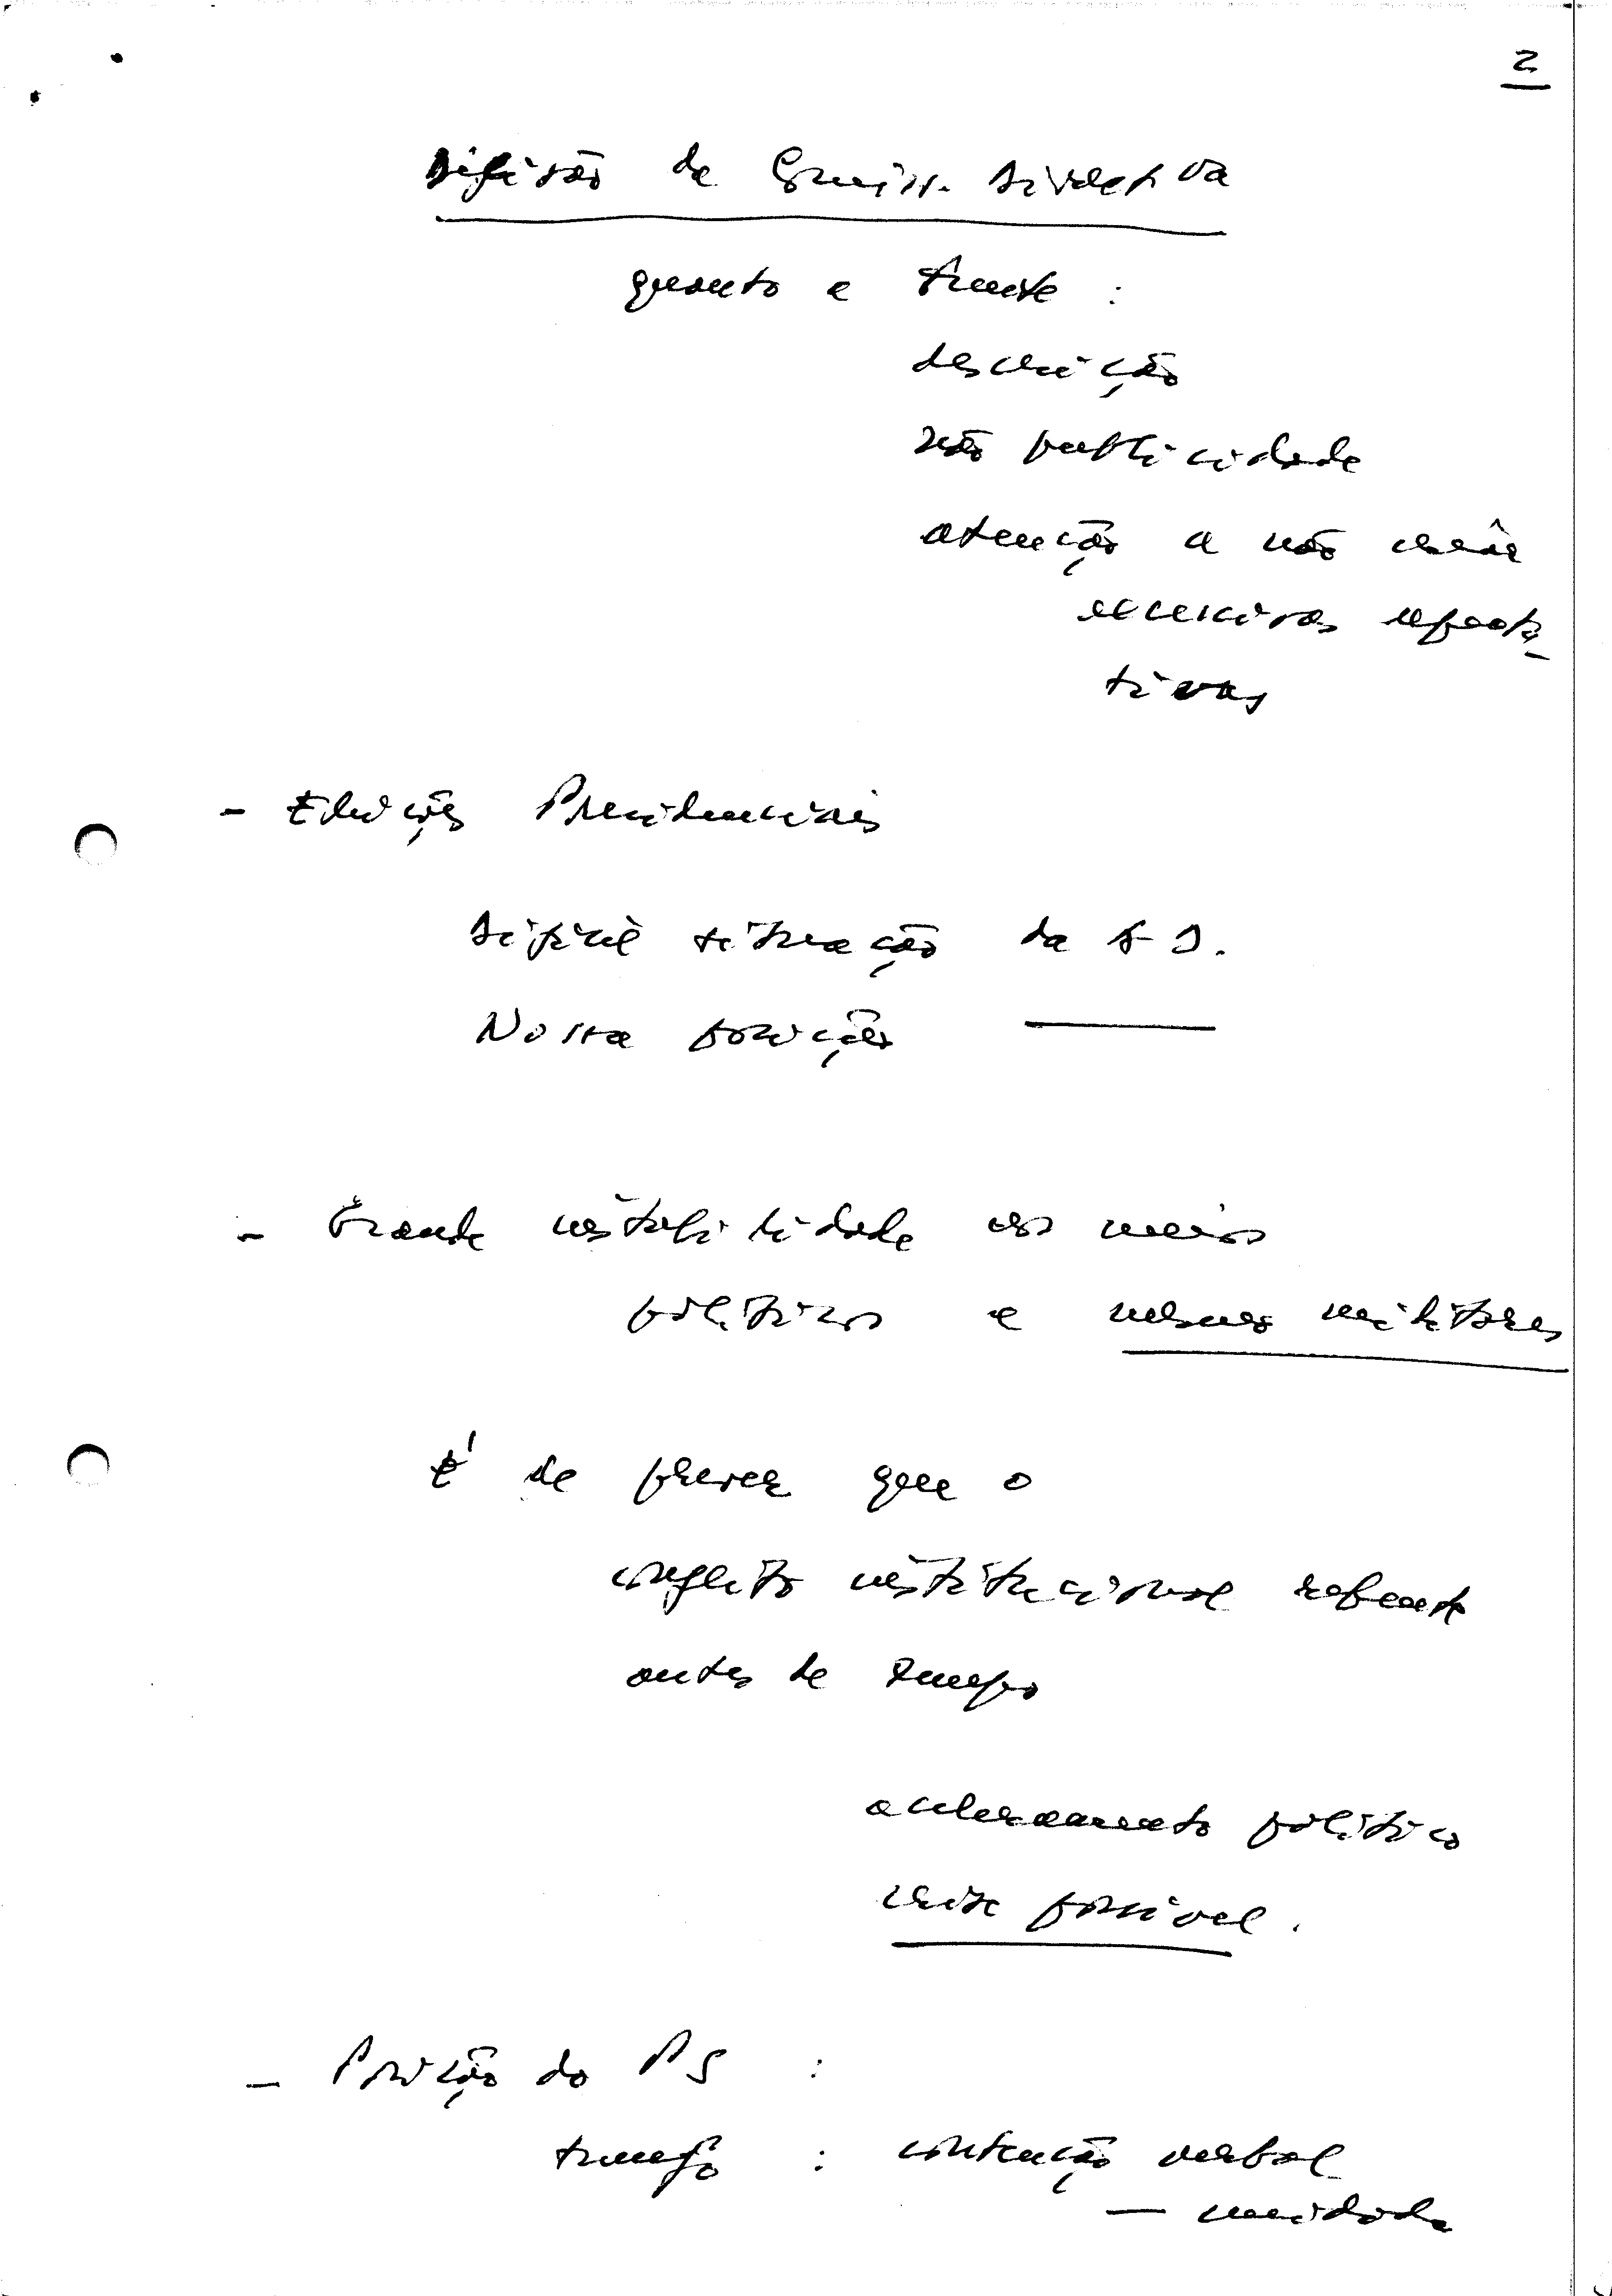 2
Difusão da Comiss. Directiva
quanto a frente :
descrição
não publicidade
atenção a não criar
excessivas expecta-
tivas
- Eleições Presidenciais
Difícil situação da A D.
Nossa posição ——
- Grande instabilidade nos meios
políticos e mesmo militares
É de prever que o
conflito institucional rebente
antes de tempo
aceleramento político
crise possível.
- Posição do PS :
trunfo : contenção verbal
— unidade